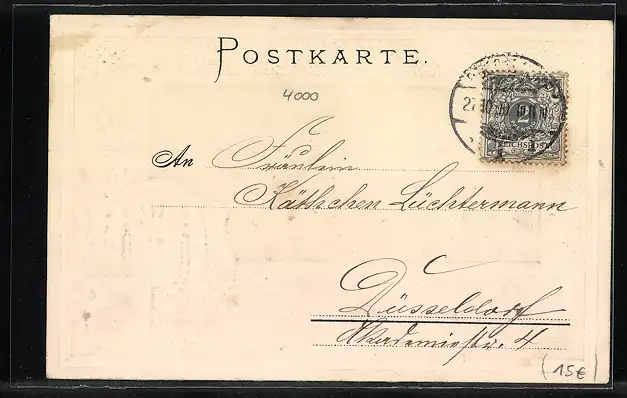 POSTKARTE.
4000
27.10.
2
REICHSPOST
An Fräulein
Käthchen Lüchtermann
Düsseldorf
Akademiestr. 4
(15€)